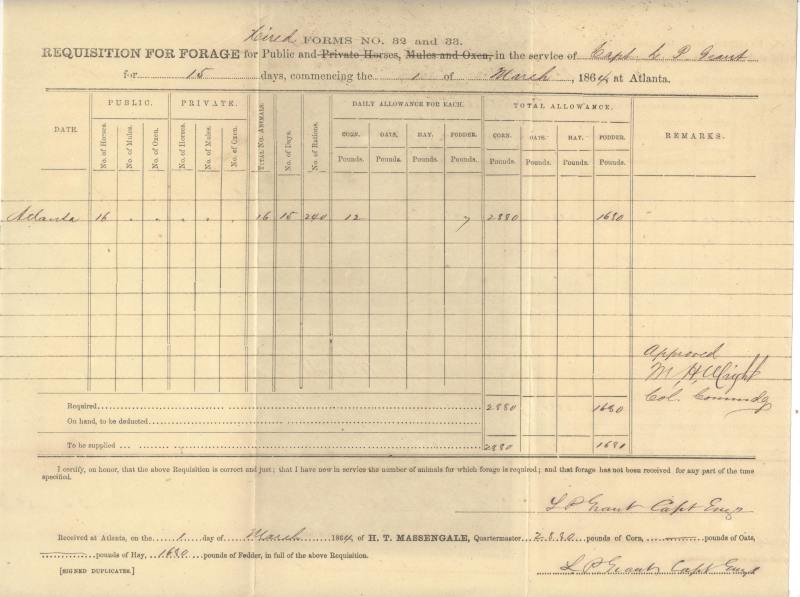 Hired FORMS NO. 32 and 33.
REQUISITION FOR FORAGE for Public and Private Horses, Mules and Oxen, in the service of Capt L P Grant
for 15 days, commencing the 1 of March, 1864 at Atlanta.
DATE. PUBLIC. PRIVATE. TOTAL NO. ANIMALS. No. of Days. No. of Rations. DAILY ALLOWANCE FOR EACH. TOTAL ALLOWANCE. REMARKS.
No. of Horses. No. of Mules. No. of Oxen. No. of Horses. No. of Mules. No. of Oxen. CORN. OATS. HAY. FODDER. CORN. OATS. HAY. FODDER.
Pounds. Pounds. Pounds. Pounds. Pounds. Pounds. Pounds. Pounds.
Atlanta 16 " " " " " 16 15 240 12 7 2880 1680
Approved
M. H. Wright
Col. Commdg
Required 2880 1680
On hand, to be deducted
To be supplied 2880 1680
I certify, on honor, that the above Requisition is correct and just; that I have now in service the number of animals for which forage is required; and that forage has not been received for any part of the time
specified.
L P Grant Capt Engr
Received at Atlanta, on the 1 day of March 1864, of H. T. MASSENGALE, Quartermaster 2880 pounds of Corn, pounds of Oats,
pounds of Hay, 1680 pounds of Fodder, in full of the above Requisition.
[SIGNED DUPLICATES.]
L P Grant Capt Engr